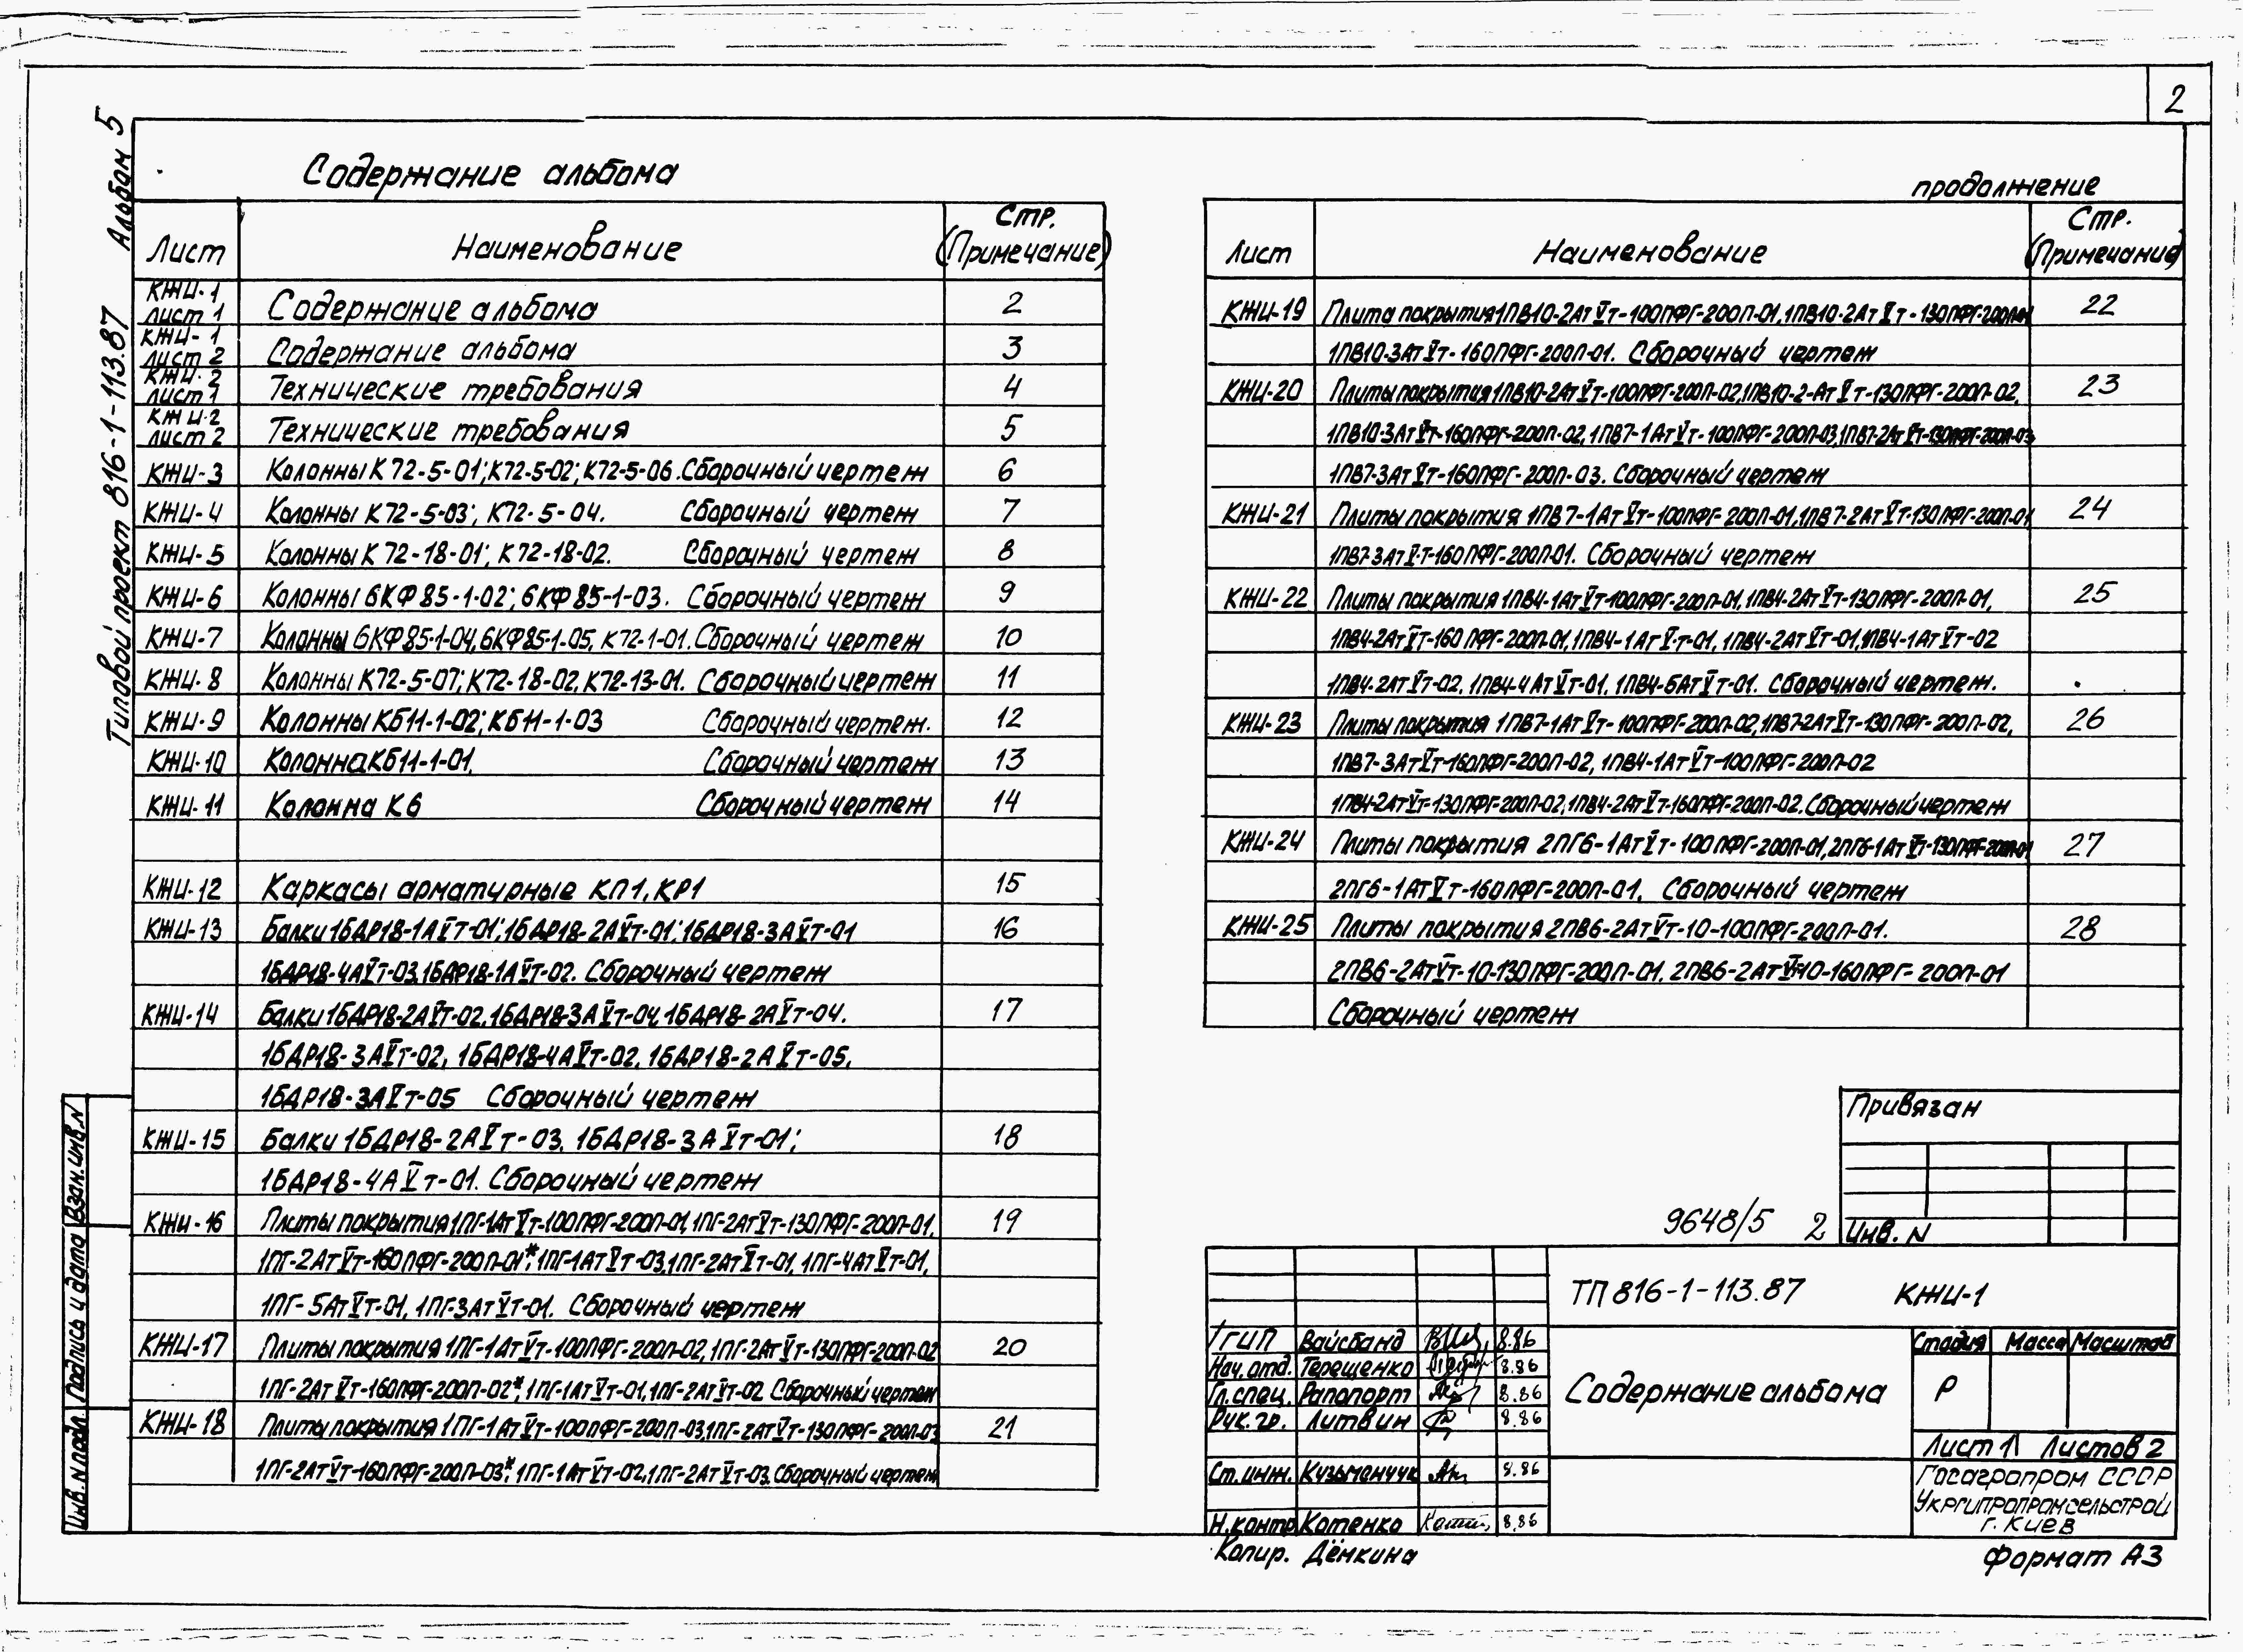 2
Типовой проект 816-1-113.87 Альбом 5
Содержание альбома
Лист Наименование Стр. (Примечание)
КЖИ-1 лист 1 Содержание альбома 2
КЖИ-1 лист 2 Содержание альбома 3
КЖИ-2 лист 1 Технические требования 4
КЖИ-2 лист 2 Технические требования 5
КЖИ-3 Колонны К72-5-01; К72-5-02; К72-5-06. Сборочный чертеж 6
КЖИ-4 Колонны К72-5-03; К72-5-04. Сборочный чертеж 7
КЖИ-5 Колонны К72-18-01; К72-18-02. Сборочный чертеж 8
КЖИ-6 Колонны 6КФ85-1-02; 6КФ85-1-03. Сборочный чертеж 9
КЖИ-7 Колонны 6КФ85-1-04, 6КФ85-1-05, К72-1-01. Сборочный чертеж 10
КЖИ-8 Колонны К72-5-07; К72-18-02, К72-13-01. Сборочный чертеж 11
КЖИ-9 Колонны КБ11-1-02; КБ11-1-03 Сборочный чертеж. 12
КЖИ-10 Колонна КБ11-1-01. Сборочный чертеж 13
КЖИ-11 Колонна К6 Сборочный чертеж 14
КЖИ-12 Каркасы арматурные КП1, КР1 15
КЖИ-13 Балки 1БДР18-1АⅤт-01; 1БДР18-2АⅤт-01; 1БДР18-3АⅤт-01 16
1БДР18-4АⅤт-03, 1БДР18-1АⅤт-02. Сборочный чертеж
КЖИ-14 Балки 1БДР18-2АⅤт-02, 1БДР18-3АⅤт-04, 1БДР18-2АⅤт-04. 17
1БДР18-3АⅤт-02, 1БДР18-4АⅤт-02, 1БДР18-2АⅤт-05,
1БДР18-3АⅤт-05 Сборочный чертеж
КЖИ-15 Балки 1БДР18-2АⅤт-03, 1БДР18-3АⅤт-01; 18
1БДР18-4АⅤт-01. Сборочный чертеж
КЖИ-16 Плиты покрытия 1ПГ-1АтⅤт-100ПФГ-200П-01, 1ПГ-2АтⅤт-130ПФГ-200П-01, 19
1ПГ-2АтⅤт-160ПФГ-200П-01*; 1ПГ-1АтⅤт-03, 1ПГ-2АтⅤт-01, 1ПГ-4АтⅤт-01,
1ПГ-5АтⅤт-01, 1ПГ-3АтⅤт-01. Сборочный чертеж
КЖИ-17 Плиты покрытия 1ПГ-1АтⅤт-100ПФГ-200П-02, 1ПГ-2АтⅤт-130ПФГ-200П-02 20
1ПГ-2АтⅤт-160ПФГ-200П-02*, 1ПГ-1АтⅤт-01, 1ПГ-2АтⅤт-02 Сборочный чертеж
КЖИ-18 Плиты покрытия 1ПГ-1АтⅤт-100ПФГ-200П-03, 1ПГ-2АтⅤт-130ПФГ-200П-03 21
1ПГ-2АтⅤт-160ПФГ-200П-03*, 1ПГ-1АтⅤт-02, 1ПГ-2АтⅤт-03. Сборочный чертеж
продолжение
Лист Наименование Стр. (Примечание)
КЖИ-19 Плита покрытия 1ПВ10-2АтⅤт-100ПФГ-200П-01, 1ПВ10-2АтⅤт-130ПФГ-200П-01 22
1ПВ10-3АтⅤт-160ПФГ-200П-01. Сборочный чертеж
КЖИ-20 Плиты покрытия 1ПВ10-2АтⅤт-100ПФГ-200П-02, 1ПВ10-2-АтⅤт-130ПФГ-200П-02, 23
1ПВ10-3АтⅤт-160ПФГ-200П-02, 1ПВ7-1АтⅤт-100ПФГ-200П-03, 1ПВ7-2АтⅤт-130ПФГ-200П-03
1ПВ7-3АтⅤт-160ПФГ-200П-03. Сборочный чертеж
КЖИ-21 Плиты покрытия 1ПВ7-1АтⅤт-100ПФГ-200П-01, 1ПВ7-2АтⅤт-130ПФГ-200П-01 24
1ПВ7-3АтⅤ-т-160ПФГ-200П-01. Сборочный чертеж
КЖИ-22 Плиты покрытия 1ПВ4-1АтⅤт-100ПФГ-200П-01, 1ПВ4-2АтⅤт-130ПФГ-200П-01, 25
1ПВ4-2АтⅤт-160ПФГ-200П-01, 1ПВ4-1АтⅤ-т-01, 1ПВ4-2АтⅤт-01, 1ПВ4-1АтⅤт-02
1ПВ4-2АтⅤт-02, 1ПВ4-4АтⅤт-01, 1ПВ4-5АтⅤт-01. Сборочный чертеж.
КЖИ-23 Плиты покрытия 1ПВ7-1АтⅤт-100ПФГ-200П-02, 1ПВ7-2АтⅤт-130ПФГ-200П-02, 26
1ПВ7-3АтⅤт-160ПФГ-200П-02, 1ПВ4-1АтⅤт-100ПФГ-200П-02
1ПВ4-2АтⅤт-130ПФГ-200П-02, 1ПВ4-2АтⅤт-160ПФГ-200П-02. Сборочный чертеж
КЖИ-24 Плиты покрытия 2ПГ6-1АтⅤт-100ПФГ-200П-01, 2ПГ6-1АтⅤт-130ПФГ-200П-01 27
2ПГ6-1АтⅤт-160ПФГ-200П-01. Сборочный чертеж
КЖИ-25 Плиты покрытия 2ПВ6-2АтⅤт-10-100ПФГ-200П-01. 28
2ПВ6-2АтⅤт-10-130ПФГ-200П-01. 2ПВ6-2АтⅤт-10-160ПФГ-200П-01
Сборочный чертеж
Привязан
Инв. N
9648/5 2
ТП 816-1-113.87 КЖИ-1
ГИП Вайсбанд 8.86
Нач. отд. Терещенко 8.86
Гл. спец. Рапопорт 8.86
Рук. гр. Литвин 8.86
Ст. инж. Кузьменчук 8.86
Н. контр Котенко 8.86
Содержание альбома
Стадия Масса Масштаб
Р
Лист 1 Листов 2
Госагропром СССР
Укргипропромсельстрой
г. Киев
Копир. Дёмкина
Формат А3
Инв. N подл. Подпись и дата Взам. инв. N